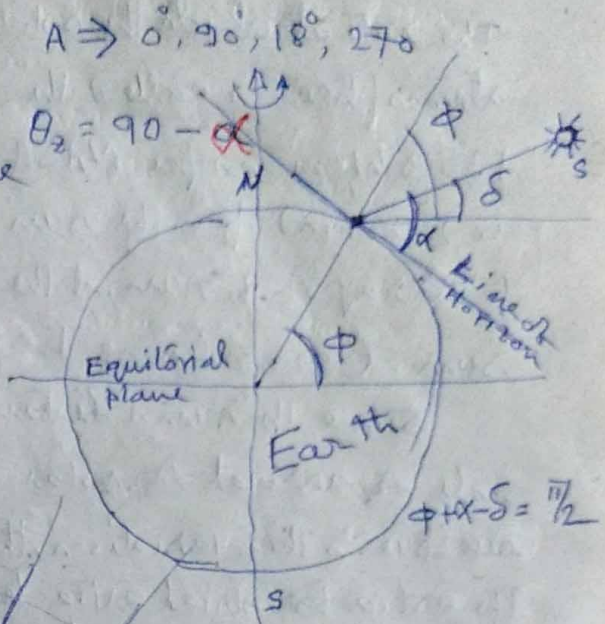 A ⇒ 0°, 90°, 18°, 270
θz = 90 - α
N
ϕ
S
δ
α
Line of
Horizon
ϕ
Equitorial
plane
Earth
ϕ+α-δ = π/2
S